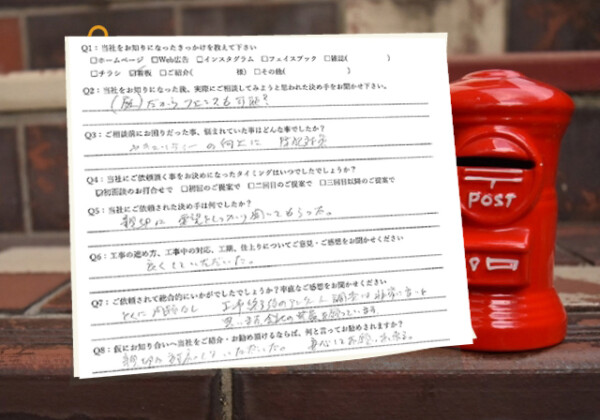 Q1：当社をお知りになったきっかけを教えて下さい
□ホームページ □Web広告 □インスタグラム □フェイスブック □雑誌(　　　)
□チラシ ☑看板 □ご紹介(　　　様) □その他(　　　)
Q2：当社をお知りになった後、実際にご相談してみようと思われた決め手をお聞かせ下さい。
だから フェンスも可能?
Q3：ご相談前にお困りだった事、悩まれていた事はどんな事でしたか？
セキュリティーの向上に
Q4：当社にご依頼頂く事をお決めになったタイミングはいつでしたでしょうか？
☑初面談のお打合せで □初回のご提案で □二回目のご提案で □三回目以降のご提案で
Q5：当社にご依頼された決め手は何でしたか？
親切に 要望をしっかり聞いてもらった。
Q6：工事の進め方、工事中の対応、工期、仕上りについてご意見・ご感想をお聞かせください
良くしていただいた。
Q7：ご依頼されて総合的にいかがでしたでしょうか？率直なご感想をお聞かせください
とくに 工事終了後のアンケート調査は非常に良いと
思います
Q8：仮にお知り合いへ当社をご紹介・お勧め頂けるならば、何と言ってお勧めされますか？
親切に いただいた。 安心してお願い出来る。
POST